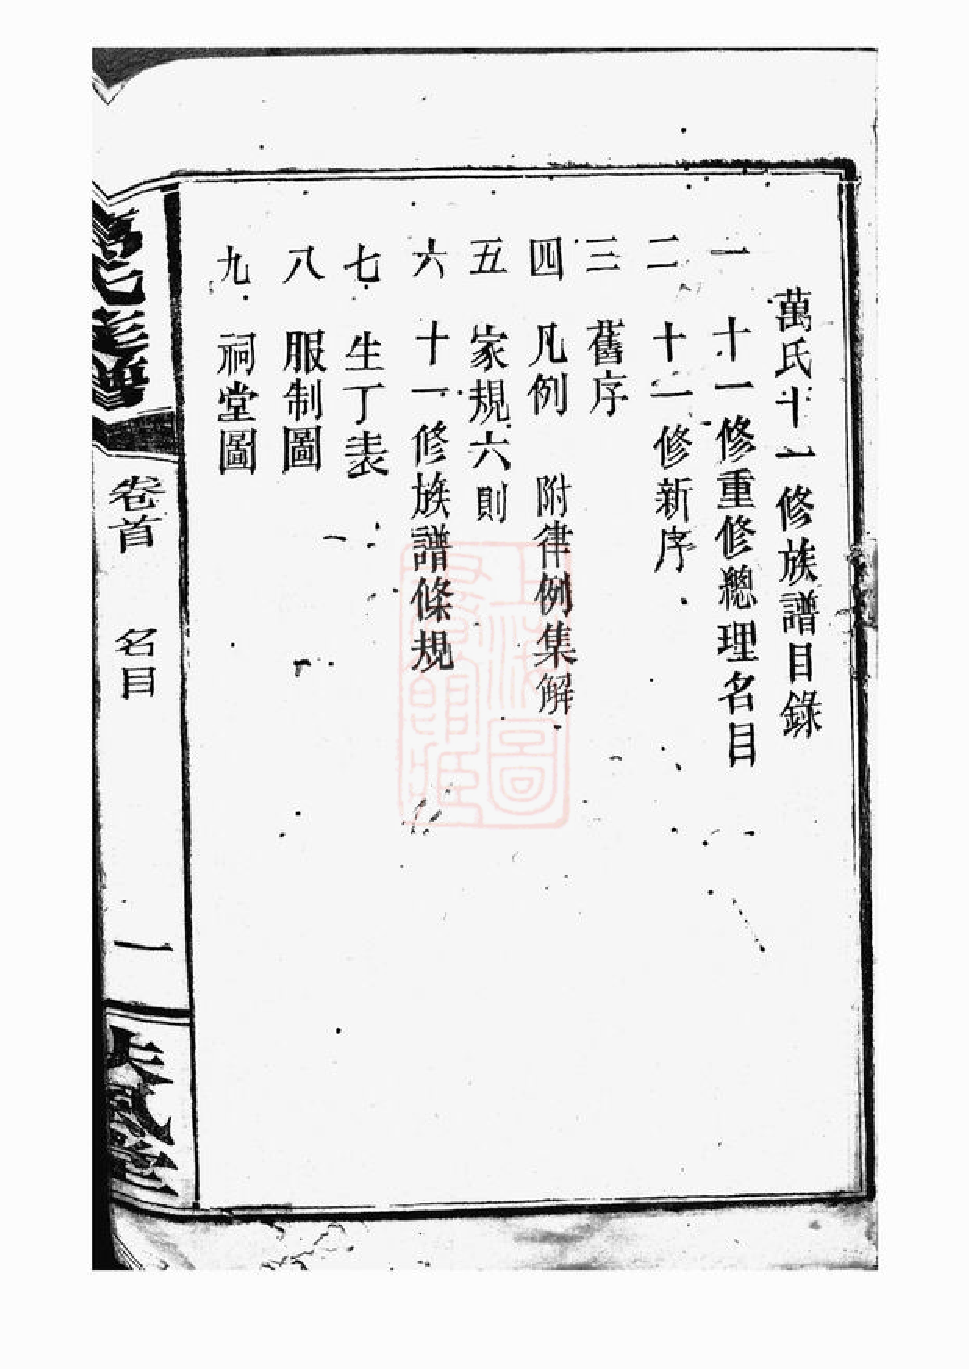 萬氏十一修族譜目錄
一 十一修重修總理名目
二 十一修新序
三 舊序
四 凡例 附律例集解
五 家規六則
六 十一修族譜條規
七 生丁表
八 服制圖
九 祠堂圖
萬氏族譜 卷首 名目 一 扶風堂